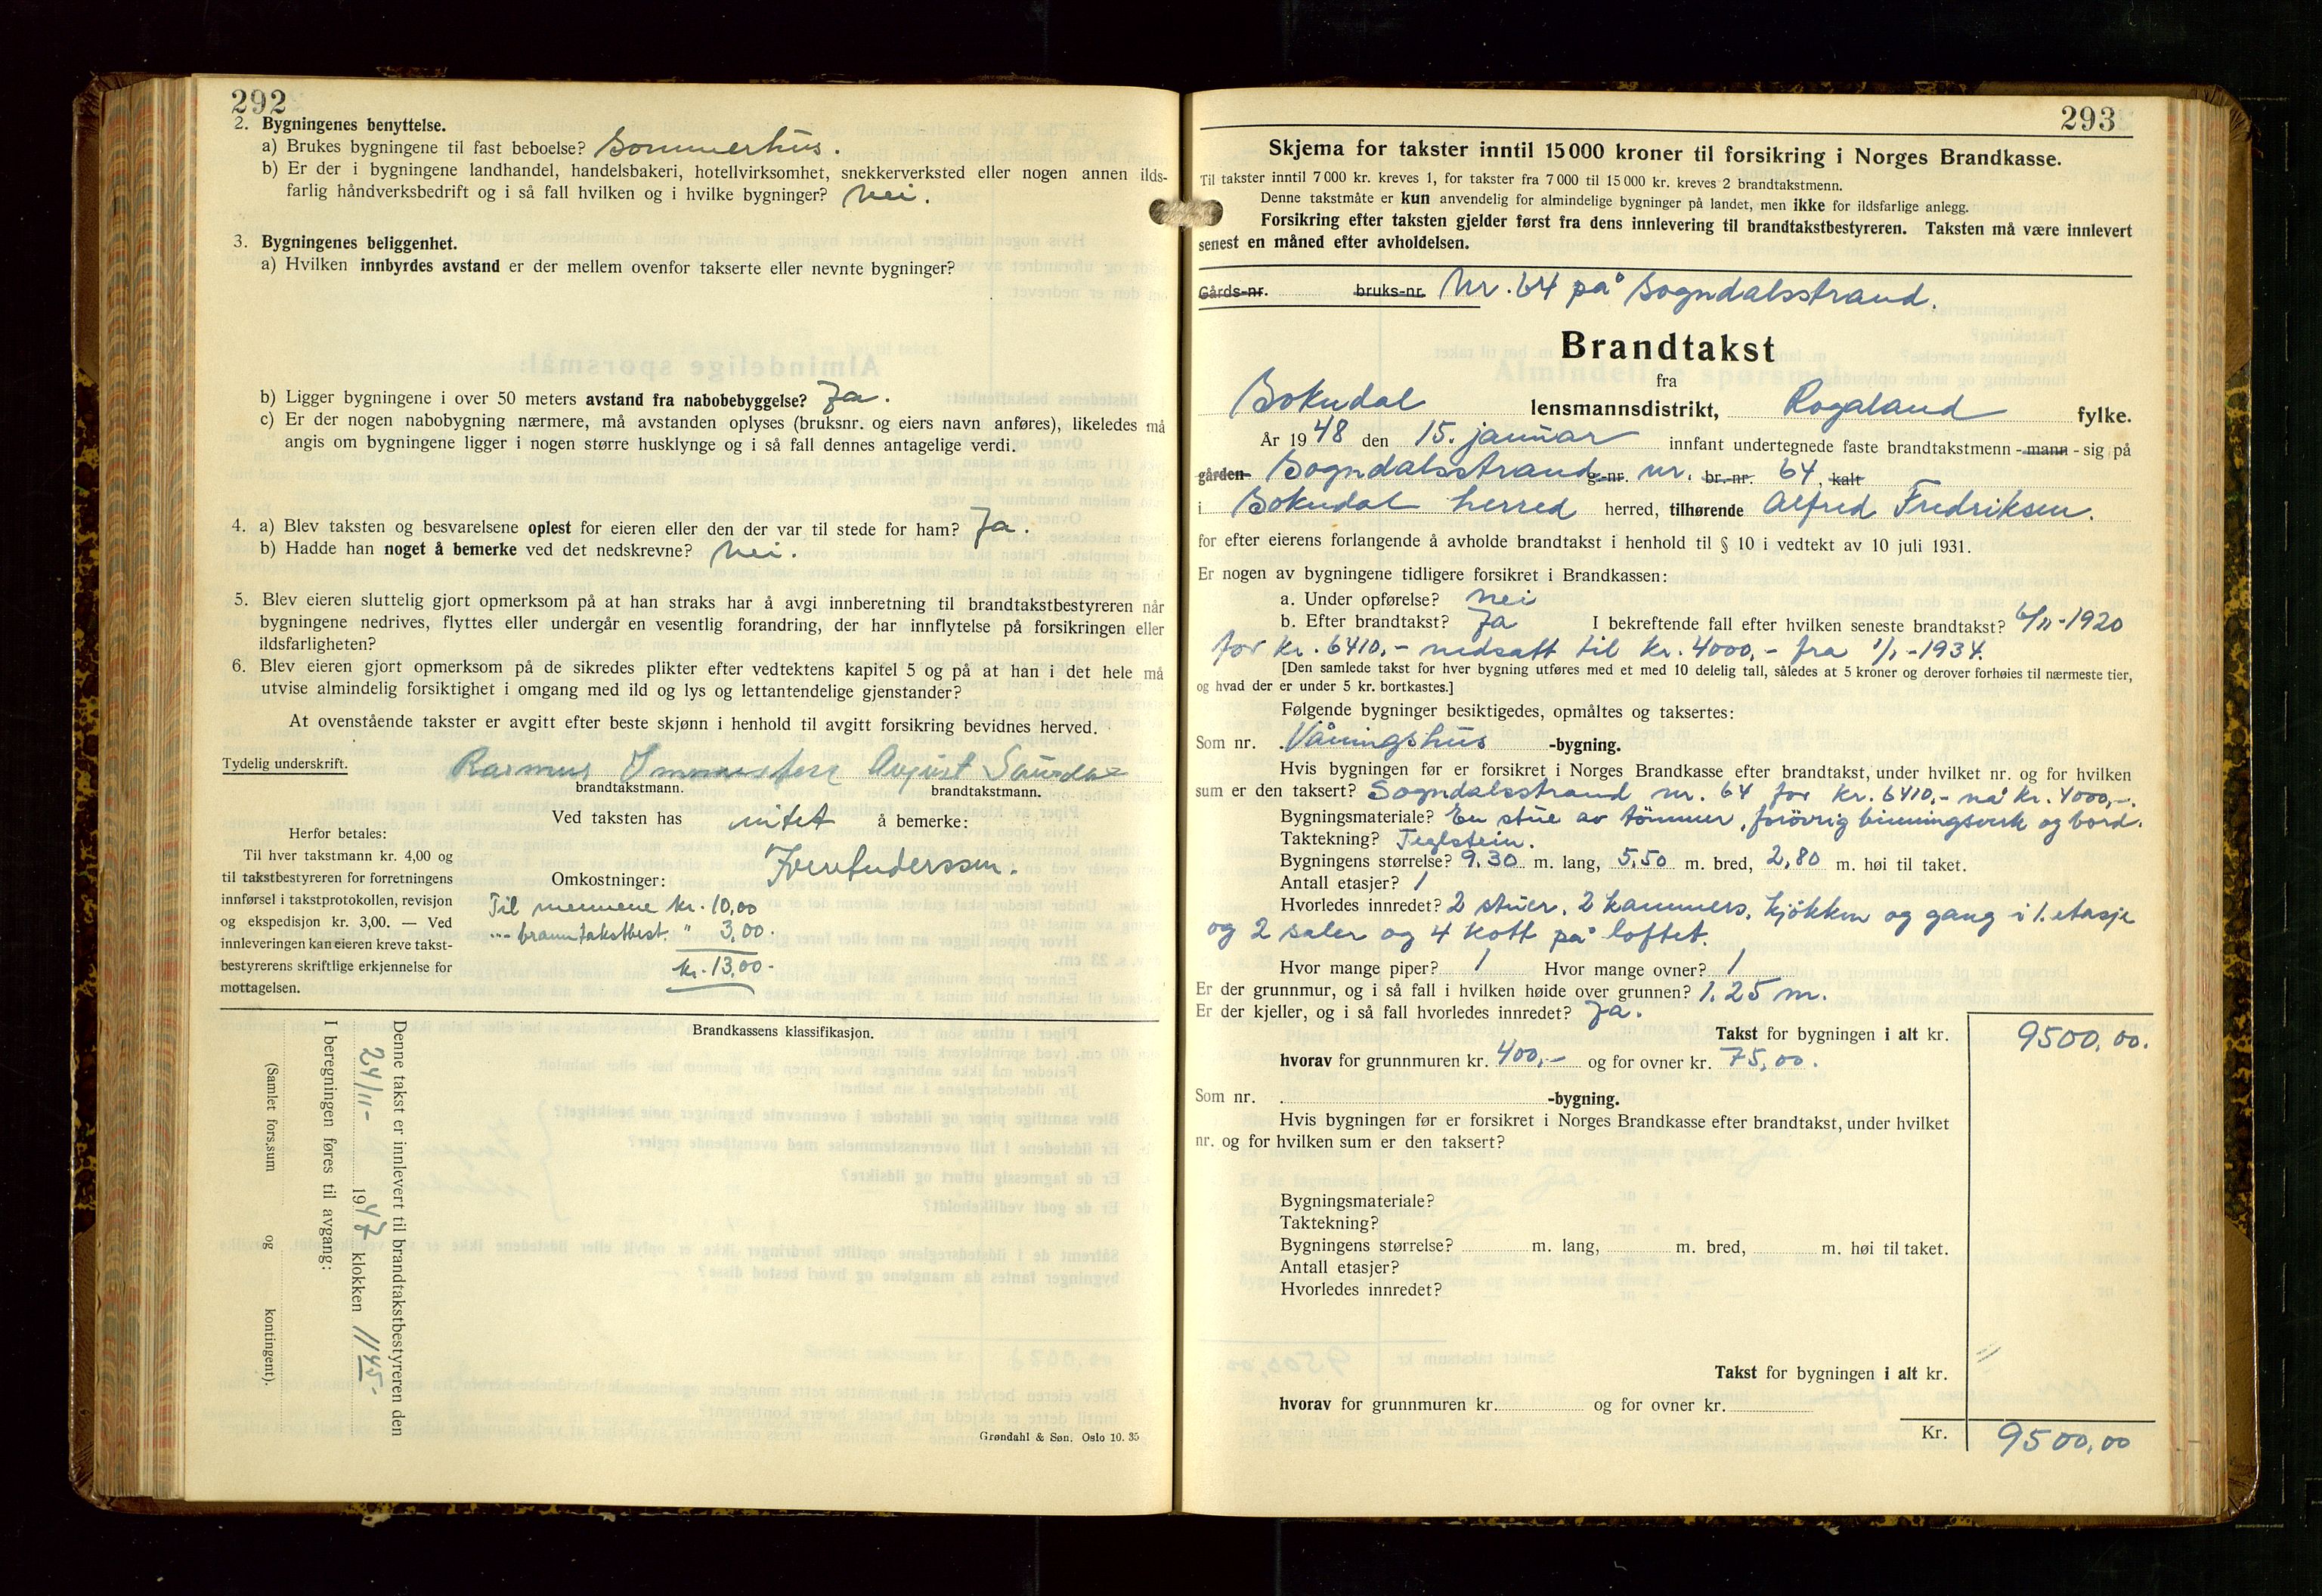 292
2. Bygningenes benyttelse.
a) Brukes bygningene til fast beboelse? Sommerhus.
b) Er der i bygningene landhandel, handelsbakeri, hotellvirksomhet, snekkerverksted eller nogen annen ilds-
farlig håndverksbedrift og i så fall hvilken og i hvilke bygninger? Nei.
3. Bygningenes beliggenhet.
a) Hvilken innbyrdes avstand er der mellem ovenfor takserte eller nevnte bygninger?
b) Ligger bygningene i over 50 meters avstand fra nabobebyggelse? Ja.
c) Er der nogen nabobygning nærmere, må avstanden oplyses (bruksnr. og eiers navn anføres), likeledes må
angis om bygningene ligger i nogen større husklynge og i så fall dennes antagelige verdi.
4. a) Blev taksten og besvarelsene oplest for eieren eller den der var til stede for ham? Ja.
b) Hadde han noget å bemerke ved det nedskrevne? Nei.
5. Blev eieren sluttelig gjort opmerksom på at han straks har å avgi innberetning til brandtakstbestyreren når
bygningene nedrives, flyttes eller undergår en vesentlig forandring, der har innflytelse på forsikringen eller
ildsfarligheten?
6. Blev eieren gjort opmerksom på de sikredes plikter efter vedtektens kapitel 5 og på at han i det hele må
utvise almindelig forsiktighet i omgang med ild og lys og lettantendelige gjenstander?
At ovenstående takster er avgitt efter beste skjønn i henhold til avgitt forsikring bevidnes herved.
Tydelig underskrift. Rasmus August
brandtakstmann. brandtakstmann.
Ved taksten has intet å bemerke:
Herfor betales:
Til hver takstmann kr. 4,00 og
til takstbestyreren for forretningens
innførsel i takstprotokollen, revisjon
og ekspedisjon kr. 3,00. — Ved
innleveringen kan eieren kreve takst-
bestyrerens skriftlige erkjennelse for
mottagelsen.
Omkostninger:
Til mennene kr. 10,00
-"- branntakstbest. " 3,00.
kr. 13,00.-
Brandkassens klassifikasjon.
Denne takst er innlevert til brandtakstbestyreren den
24/11- 1947 klokken 11 45-
I beregningen føres til avgang:
(Samlet fors.sum og kontingent).
Grøndahl & Søn. Oslo 10. 35
293
Skjema for takster inntil 15 000 kroner til forsikring i Norges Brandkasse.
Til takster inntil 7 000 kr. kreves 1, for takster fra 7 000 til 15 000 kr. kreves 2 brandtakstmenn.
Denne takstmåte er kun anvendelig for almindelige bygninger på landet, men ikke for ildsfarlige anlegg.
Forsikring efter taksten gjelder først fra dens innlevering til brandtakstbestyreren. Taksten må være innlevert
senest en måned efter avholdelsen.
Gårds-nr. bruks-nr. Nr. 64 på Sogndalsstrand.
Brandtakst
fra
Sokndal lensmannsdistrikt, Rogaland fylke.
År 1948 den 15. januar innfant undertegnede faste brandtakstmenn - mann - sig på
gården Sogndalsstrand g.-nr. nr. br.-nr. 64, kalt
i Sokndal herred herred, tilhørende Alfred Fredriksen.
for efter eierens forlangende å avholde brandtakst i henhold til § 10 i vedtekt av 10 juli 1931.
Er nogen av bygningene tidligere forsikret i Brandkassen:
a. Under opførelse? Nei
b. Efter brandtakst? Ja I bekreftende fall efter hvilken seneste brandtakst? 6/11-1920
for kr. 6410,- nedsatt til kr. 4000,- fra 1/1-1934.
[Den samlede takst for hver bygning utføres med et med 10 delelig tall, således at 5 kroner og derover forhøies til nærmeste tier,
og hvad der er under 5 kr. bortkastes.]
Følgende bygninger besiktigedes, opmåltes og taksertes:
Som nr. Våningshus -bygning.
Hvis bygningen før er forsikret i Norges Brandkasse efter brandtakst, under hvilket nr. og for hvilken
sum er den taksert? Sogndalsstrand nr. 64 for kr. 6410,- nå kr. 4000,-.
Bygningsmateriale? En stue av tømmer, forøvrig binningsverk og bord.
Taktekning? Teglstein.
Bygningens størrelse? 9,30 m. lang, 5,50 m. bred, 2,80 m. høi til taket.
Antall etasjer? 1
Hvorledes innredet? 2 stuer, 2 kammers, kjøkken og gang i 1. etasje
og 2 saler og 4 kott på loftet.
Hvor mange piper? 1 Hvor mange ovner? 1
Er der grunnmur, og i så fall i hvilken høide over grunnen? 1,25 m.
Er der kjeller, og i så fall hvorledes innredet? Ja.
Takst for bygningen i alt kr. 9500,00.
hvorav for grunnmuren kr. 400,- og for ovner kr. 75,00.
Som nr. -bygning.
Hvis bygningen før er forsikret i Norges Brandkasse efter brandtakst, under hvilket
nr. og for hvilken sum er den taksert?
Bygningsmateriale?
Taktekning?
Bygningens størrelse? m. lang, m. bred, m. høi til taket.
Antall etasjer?
Hvorledes innredet?
Takst for bygningen i alt kr.
hvorav for grunnmuren kr. og for ovner kr.
Kr. 9500,00